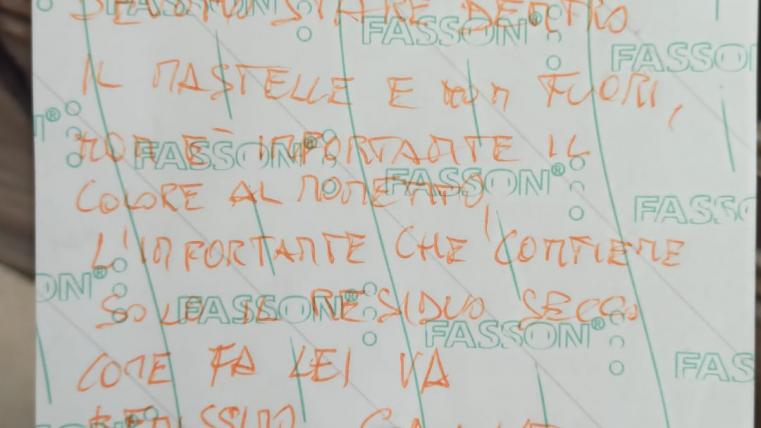 STARE DENTRO
IL MASTELLE E NON FUORI,
NON E' IMPORTANTE IL
COLORE AL MOMENTO,
L'IMPORTANTE CHE CONTIENE
SOLO IL RESIDUO SECCO
COME FA LEI VA
FASSON
FASSON®
FASSON
FASSON®
FASSON®
FASSON
ON®
FASSON®
FASSON®
FAS